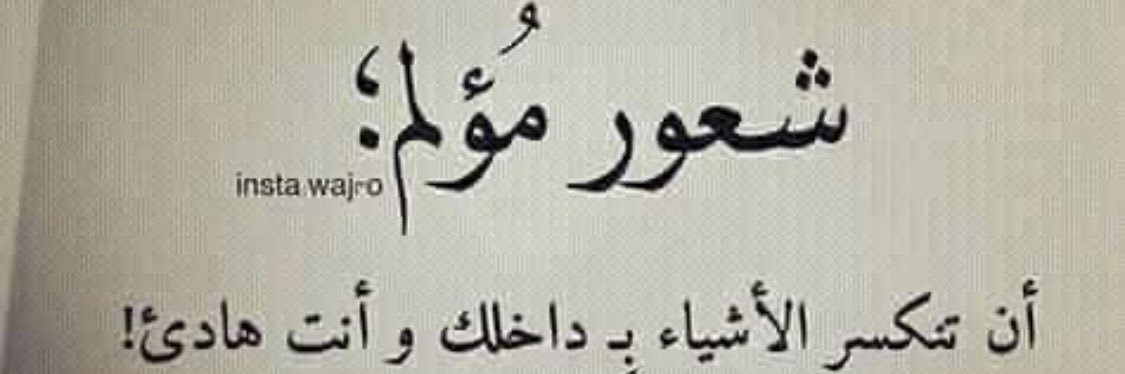 شعور مُؤلم؛
insta:wajro
أن تنكسر الأشياء بِـ داخلك و أنت هادئ!